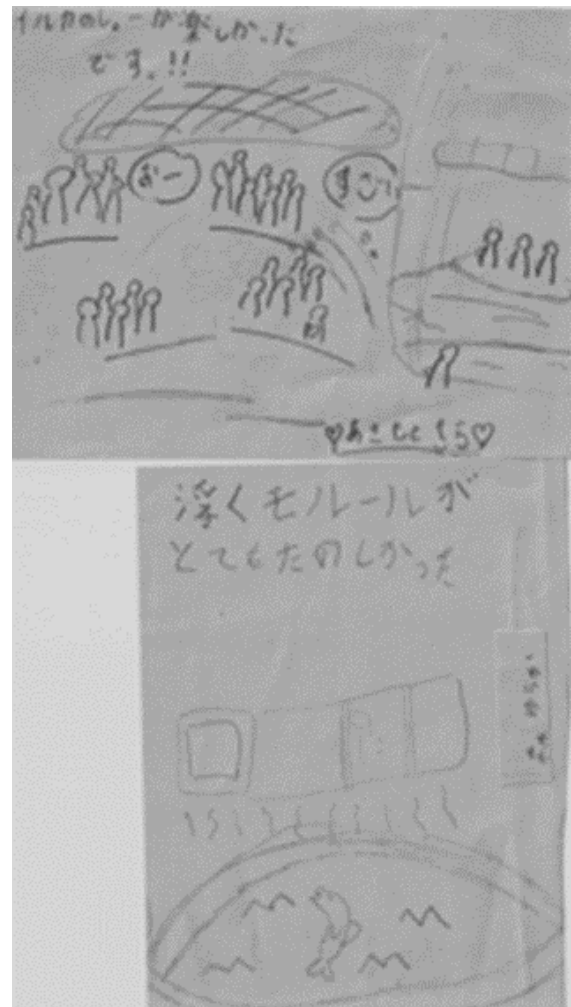 イルカのしょーが楽しかった
です。!!
おー
すごい
浮くモルールが
とてもたのしかった